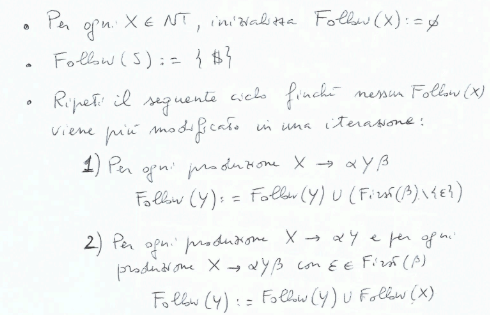 • Per ogni X ∈ NT, inizializza Follow(X) := ∅
• Follow(S) := { $ }
• Ripeti il seguente ciclo finché nessun Follow(X)
viene più modificato in una iterazione:
1) Per ogni produzione X → αYβ
Follow(Y) := Follow(Y) ∪ (First(β) \ {ε})
2) Per ogni produzione X → αY e per ogni
produzione X → αYβ con ε ∈ First(β)
Follow(Y) := Follow(Y) ∪ Follow(X)